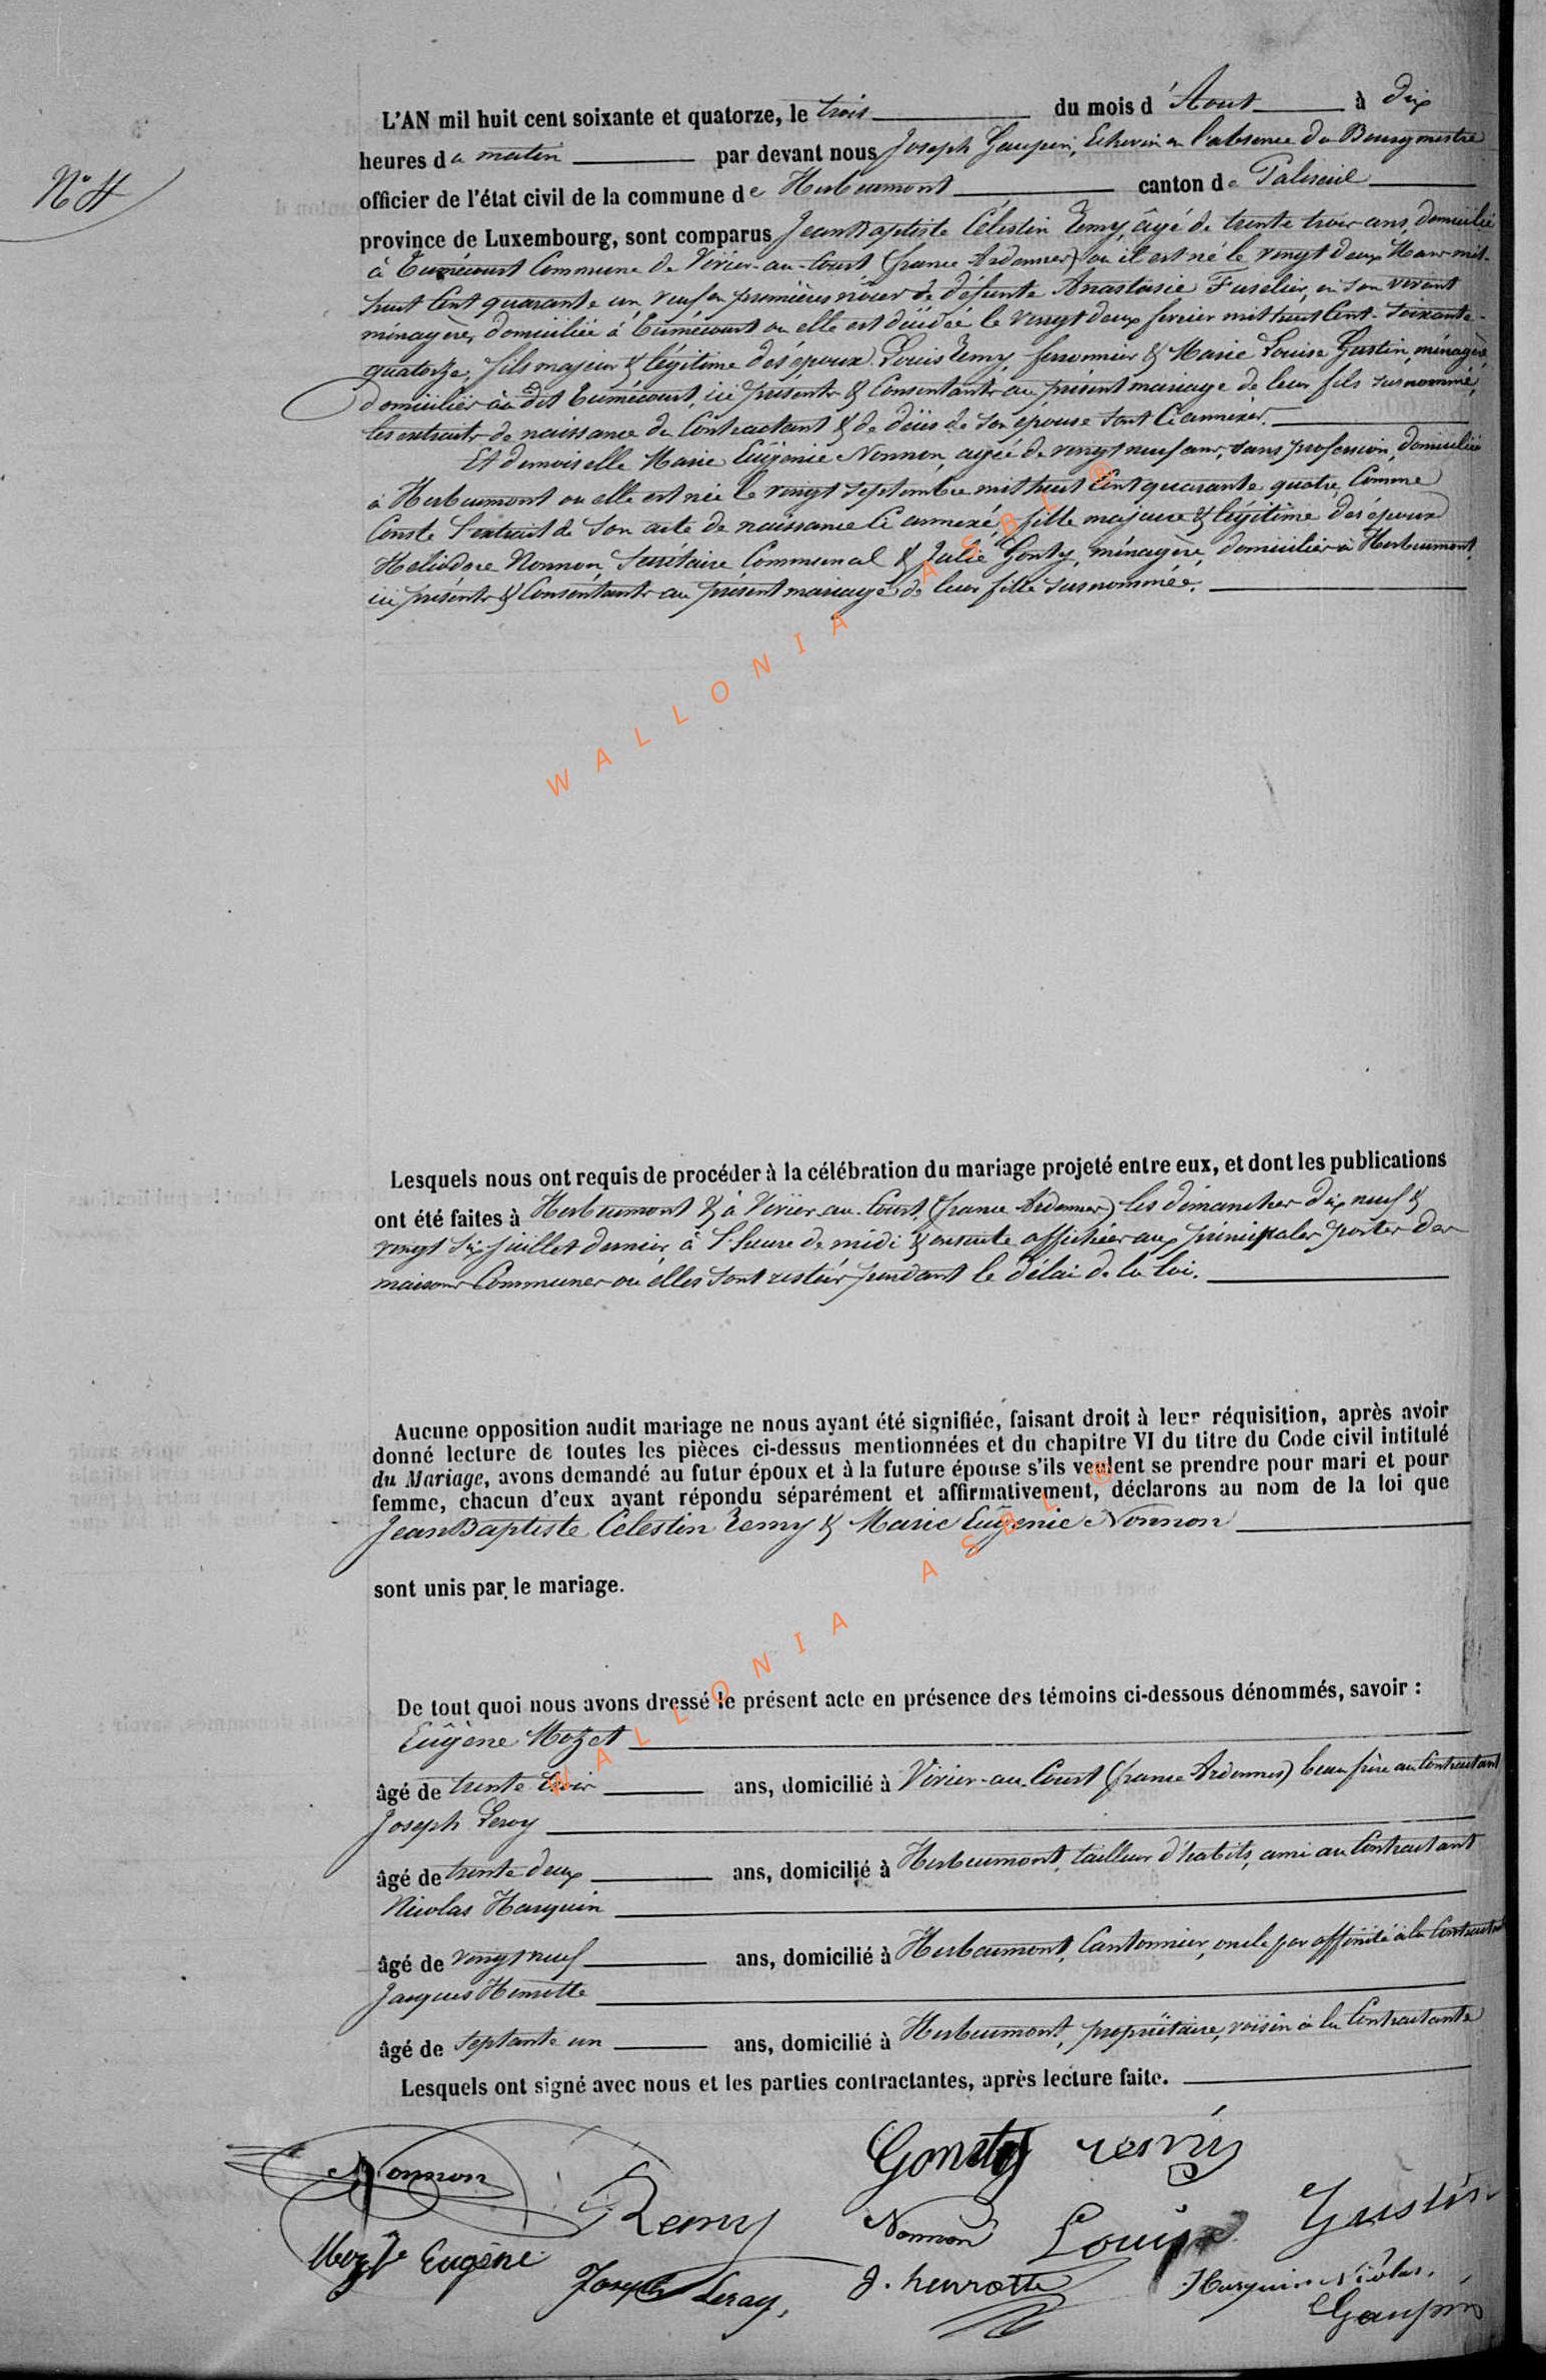 N° 4
L'AN mil huit cent soixante et quatorze, le trois du mois d'Aout à dix
heures du matin par devant nous Joseph Gaupin, Echevin en l'absence du Bourgmestre
officier de l'état civil de la commune de Herbeumont canton de Paliseul
province de Luxembourg, sont comparus Jean Baptiste Célestin Remy, âgé de trente trois ans, domicilié
à Tumécourt Commune de Vivier-au-Court (france Ardennes) ou il est né le vingt deux Mars mil-
huit Cent quarante un, veuf en premières nôces de défunte Anastasie Fuselier, en son vivant
ménagère, domiciliée à Tumécourt ou elle est décédée le vingt deux fevrier mil huit Cent-soixante-
quatorze, fils majeur & légitime des époux Louis Remy, ferronnier & Marie Louise Gustin, ménagère
domiciliés au dit Tumécourt, ici présents & Consentants au présent mariage de leur fils susnommé,
les extraits de naissance du Contractant & de décès de son épouse sont Ci annexés.
Et demoiselle Marie Eugénie Nonnon, agée de vingt neuf ans, sans profession, domiciliée
à Herbeumont ou elle est née le vingt septembre mil huit Cent quarante quatre, Comme
Conste l'extrait de son acte de naissance Ci annexé, fille majeure & légitime des époux
Héliodore Nonnon, Secrétaire Communal & Julie Gonty, ménagère, domiciliés à Herbeumont,
ici présents & Consentants au présent mariage de leur fille susnommée.
WALLONIA ASBL ®
Lesquels nous ont requis de procéder à la célébration du mariage projeté entre eux, et dont les publications
ont été faites à Herbeumont & à Vivier-au-Court, (france Ardennes) les dimanches dix neuf &
vingt six juillet dernier, à l'heure de midi & ensuite affichées aux principales portes des
maisons Communes où elles sont restées pendant le délai de la loi.
Aucune opposition audit mariage ne nous ayant été signifiée, faisant droit à leur réquisition, après avoir
donné lecture de toutes les pièces ci-dessus mentionnées et du chapitre VI du titre du Code civil intitulé
du Mariage, avons demandé au futur époux et à la future épouse s'ils veulent se prendre pour mari et pour
femme, chacun d'eux ayant répondu séparément et affirmativement, déclarons au nom de la loi que
Jean Baptiste Célestin Remy & Marie Eugénie Nonnon
sont unis par le mariage.
WALLONIA ASBL ®
De tout quoi nous avons dressé le présent acte en présence des témoins ci-dessous dénommés, savoir :
Eugène Mozet
âgé de trente trois ans, domicilié à Vivier-au-Court (france Ardennes) beau frère au Contractant
Joseph Leroy
âgé de trente deux ans, domicilié à Herbeumont, tailleur d'habits, ami au Contractant
Nicolas Harquin
âgé de vingt neuf ans, domicilié à Herbeumont, Cantonnier, oncle par affinité à la Contractante
Jacques Henrotte
âgé de septante un ans, domicilié à Herbeumont, propriétaire, voisin à la Contractante
Lesquels ont signé avec nous et les parties contractantes, après lecture faite.
Nonnon Remy Gonty remy
Nonnon Louise Gustin
Mozet Eugène Joseph Leroy, J. henrotte Harquin Nicolas.
Gaupin